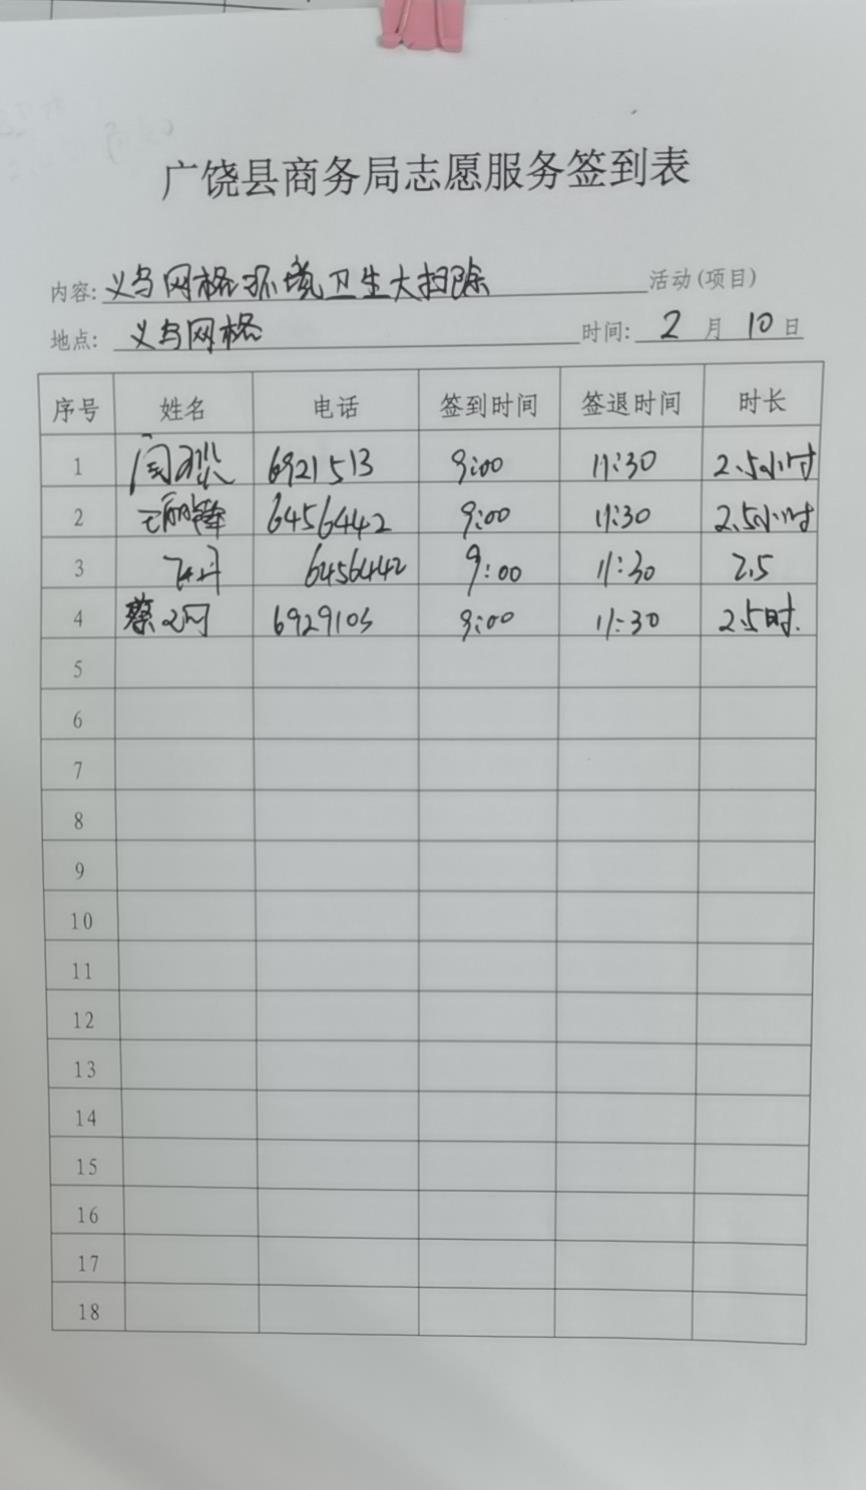 广饶县商务局志愿服务签到表
内容: 义乌网格环境卫生大扫除 活动(项目)
地点: 义乌网格 时间: 2 月 10 日
序号 姓名 电话 签到时间 签退时间 时长
1 6921513 9:00 11:30 2.5小时
2 6456442 9:00 11:30 2.5小时
3 6456442 9:00 11:30 2.5
4 蔡 6929103 9:00 11:30 2.5时.
5
6
7
8
9
10
11
12
13
14
15
16
17
18